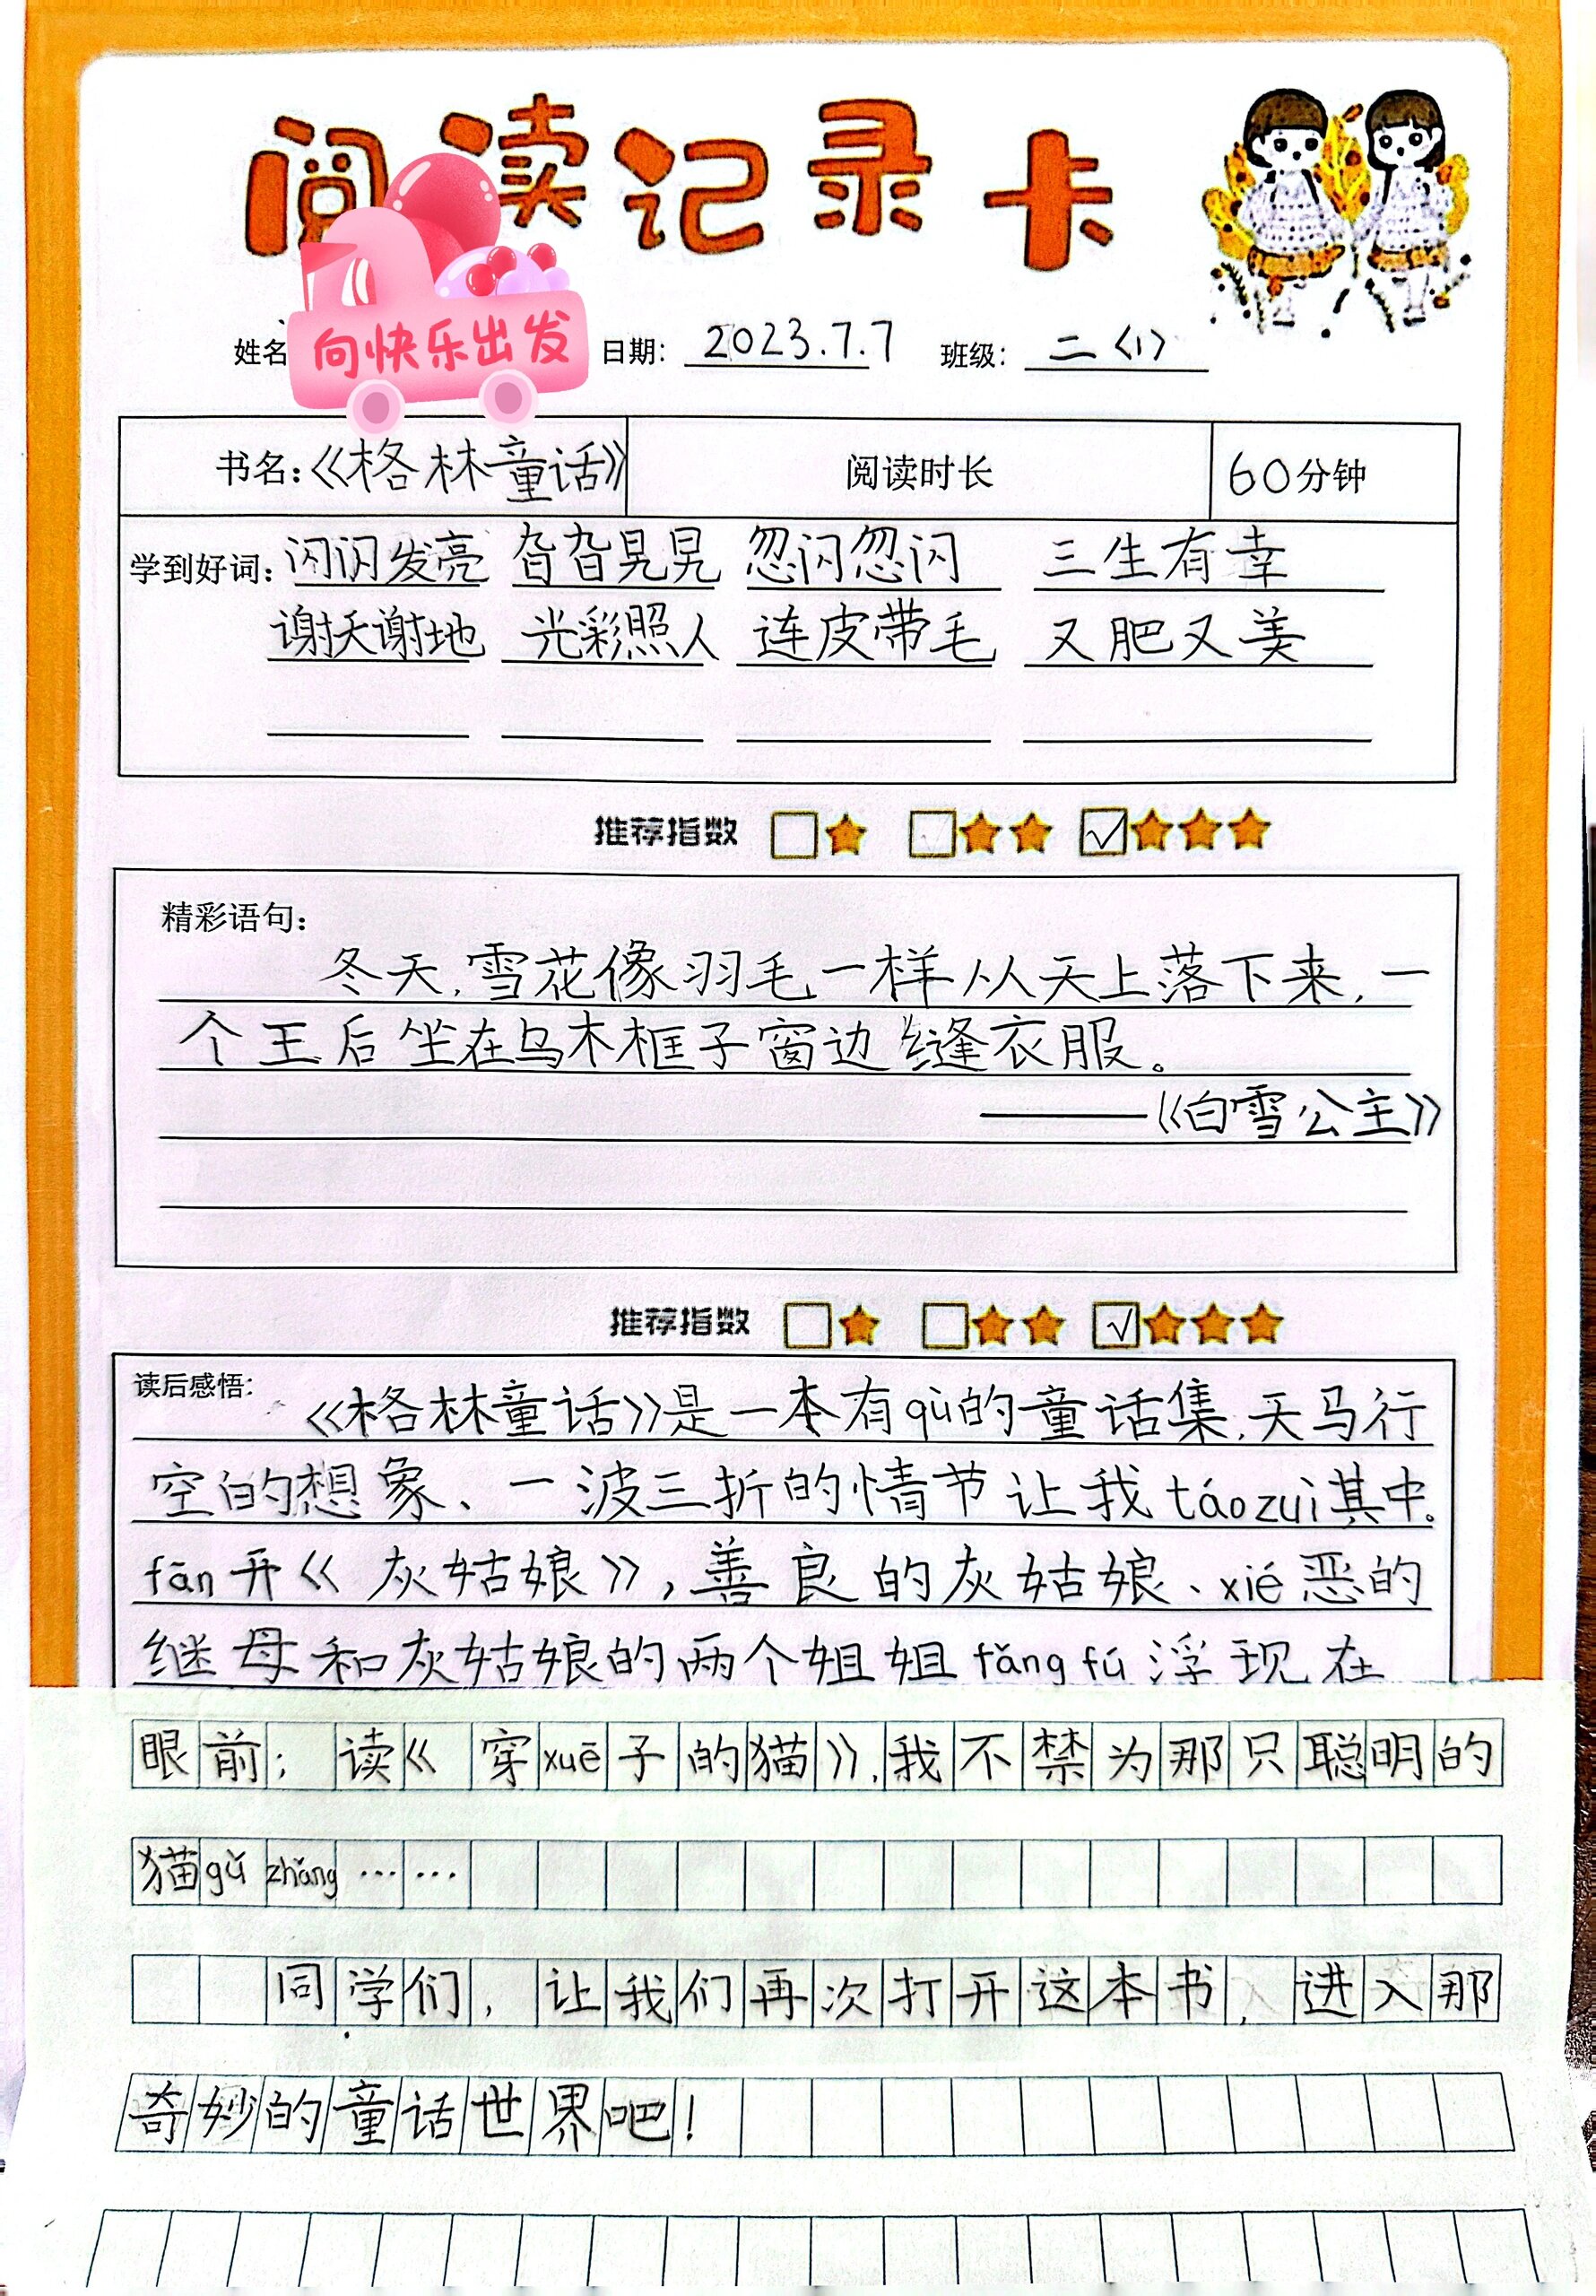 阅读记录卡
向快乐出发
姓名 日期: 2023.7.7 班级: 二〈1〉
书名:《格林童话》 阅读时长 60分钟
学到好词: 闪闪发亮 旮旮晃晃 忽闪忽闪 三生有幸
谢天谢地 光彩照人 连皮带毛 又肥又美
推荐指数
精彩语句:
冬天,雪花像羽毛一样从天上落下来,一
个王后坐在乌木框子窗边缝衣服。
——《白雪公主》
推荐指数
读后感悟:
《格林童话》是一本有qù的童话集,天马行
空的想象、一波三折的情节让我táozuì其中。
fān开《灰姑娘》,善良的灰姑娘、xié恶的
继母和灰姑娘的两个姐姐fǎngfú浮现在
眼前; 读《穿xuē子的猫》,我不禁为那只聪明的
猫gǔ zhǎng……
同学们,让我们再次打开这本书,进入那
奇妙的童话世界吧!